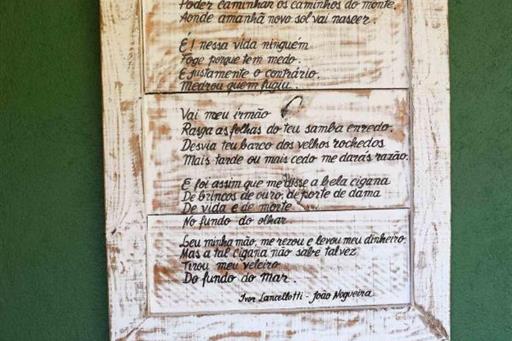 Poder caminhar os caminhos do monte,
Aonde amanhã novo sol vai nascer.
É! nessa vida ninguém
Foge porque tem medo.
É justamente o contrário.
Medrou quem fugiu.
Vai meu irmão
Rasga as folhas do teu samba enredo.
Desvia teu barco dos velhos rochedos
Mais tarde ou mais cedo me darás razão.
E foi assim que me disse a bela cigana
De brincos de ouro, de porte de dama
De vida e de morte
No fundo do olhar
Leu minha mão, me rezou e levou meu dinheiro.
Mas a tal cigana não sabe talvez
Tirou meu veleiro
Do fundo do mar.
Ivor Lancellotti - João Nogueira